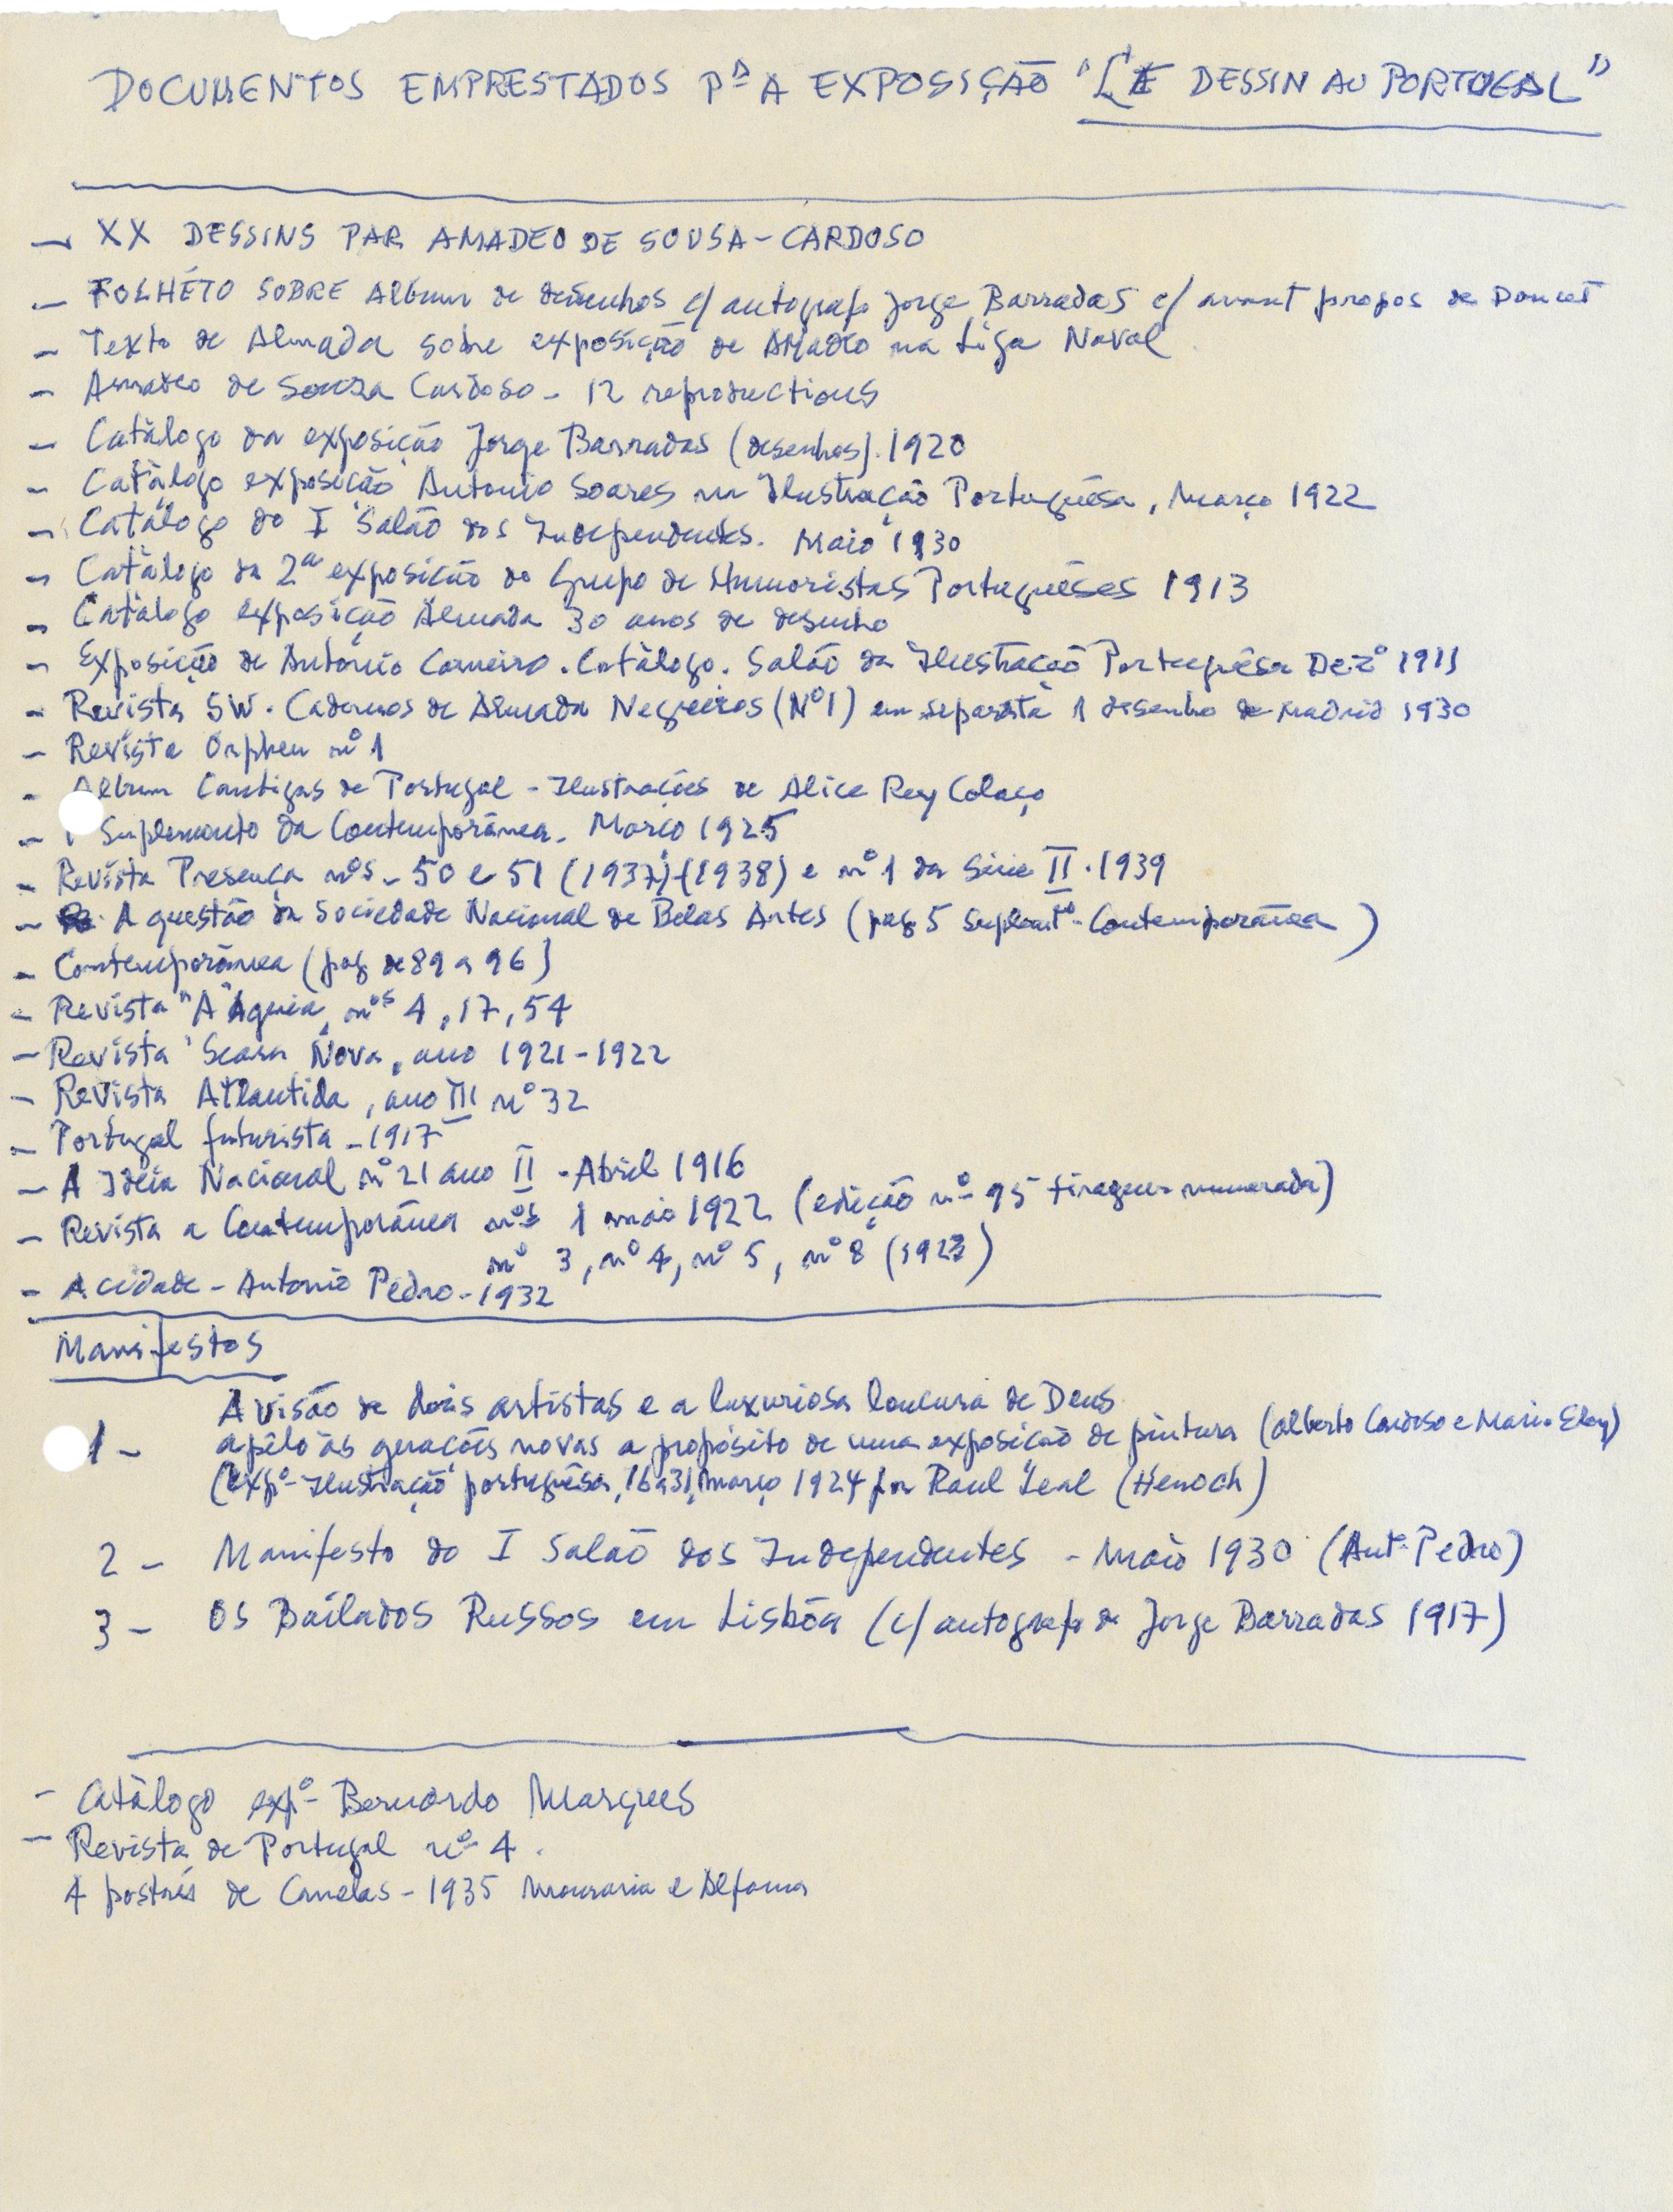 DOCUMENTOS EMPRESTADOS Pª A EXPOSIÇÃO "LE DESSIN AU PORTUGAL"
— XX DESSINS PAR AMADEO DE SOUSA-CARDOSO
— FOLHÉTO SOBRE Album de desenhos c/ autografo Jorge Barradas c/ avant propos de
— Texto de Almada sobre exposição de AMADEO na Liga Naval
— Amadeo de Souza Cardoso - 12 reproductions
— Catàlogo da exposição Jorge Barradas (desenhos). 1920
— Catàlogo exposição Antonio Soares na Ilustração Portuguêsa, Março 1922
— Catàlogo do I Salão dos Independentes. Maio 1930
— Catàlogo da 2ª exposição do Grupo de Humoristas Portuguêses 1913
— Catàlogo exposição Almada 30 anos de desenho
— Exposição de António Carneiro. Catàlogo. Salão da Ilustração Portuguêsa Dezº 1911
— Revista SW. Cadernos de Almada Negreiros (Nº1) em separata 1 desenho de Madrid 1930
— Revista Orpheu nº 1
— Album Cantigas de Portugal - Ilustrações de Alice Rey Colaço
— Suplemento da Contemporânea. Março 1925
— Revista Presença nºs - 50 e 51 (1937)-(1938) e nº 1 da Série II. 1939
— A questão da Sociedade Nacional de Belas Artes (pag. 5 Suplemtº Contemporânea)
— Contemporânea (pag de 89 a 96)
— Revista "A Águia, nºs 4, 17, 54
— Revista Seara Nova, ano 1921-1922
— Revista Atlantida, ano III nº 32
— Portugal futurista - 1917
— A Ideia Nacional nº 21 ano II - Abril 1916
— Revista a Contemporânea nºs 1 maio 1922 (edição nº 95 tiragem numerada)
nº 3, nº 4, nº 5, nº 8 (1923)
— A cidade - Antonio Pedro - 1932
Manifestos
1 - A visão de dois artistas e a luxuriosa loucura de Deus
apêlo às gerações novas a propósito de uma exposição de pintura (Alberto Cardoso e Mario Eloy)
(Expº Ilustração portuguêsa, 16 a 31, março 1924 por Raul Leal (Henoch)
2 - Manifesto do I Salão dos Independentes - Maio 1930 (Antº Pedro)
3 - Os Bailados Russos em Lisbôa (c/ autografo de Jorge Barradas 1917)
— Catàlogo expº Bernardo Marques
— Revista de Portugal nº 4.
4 postais de Canelas - 1935 Mouraria e Alfama